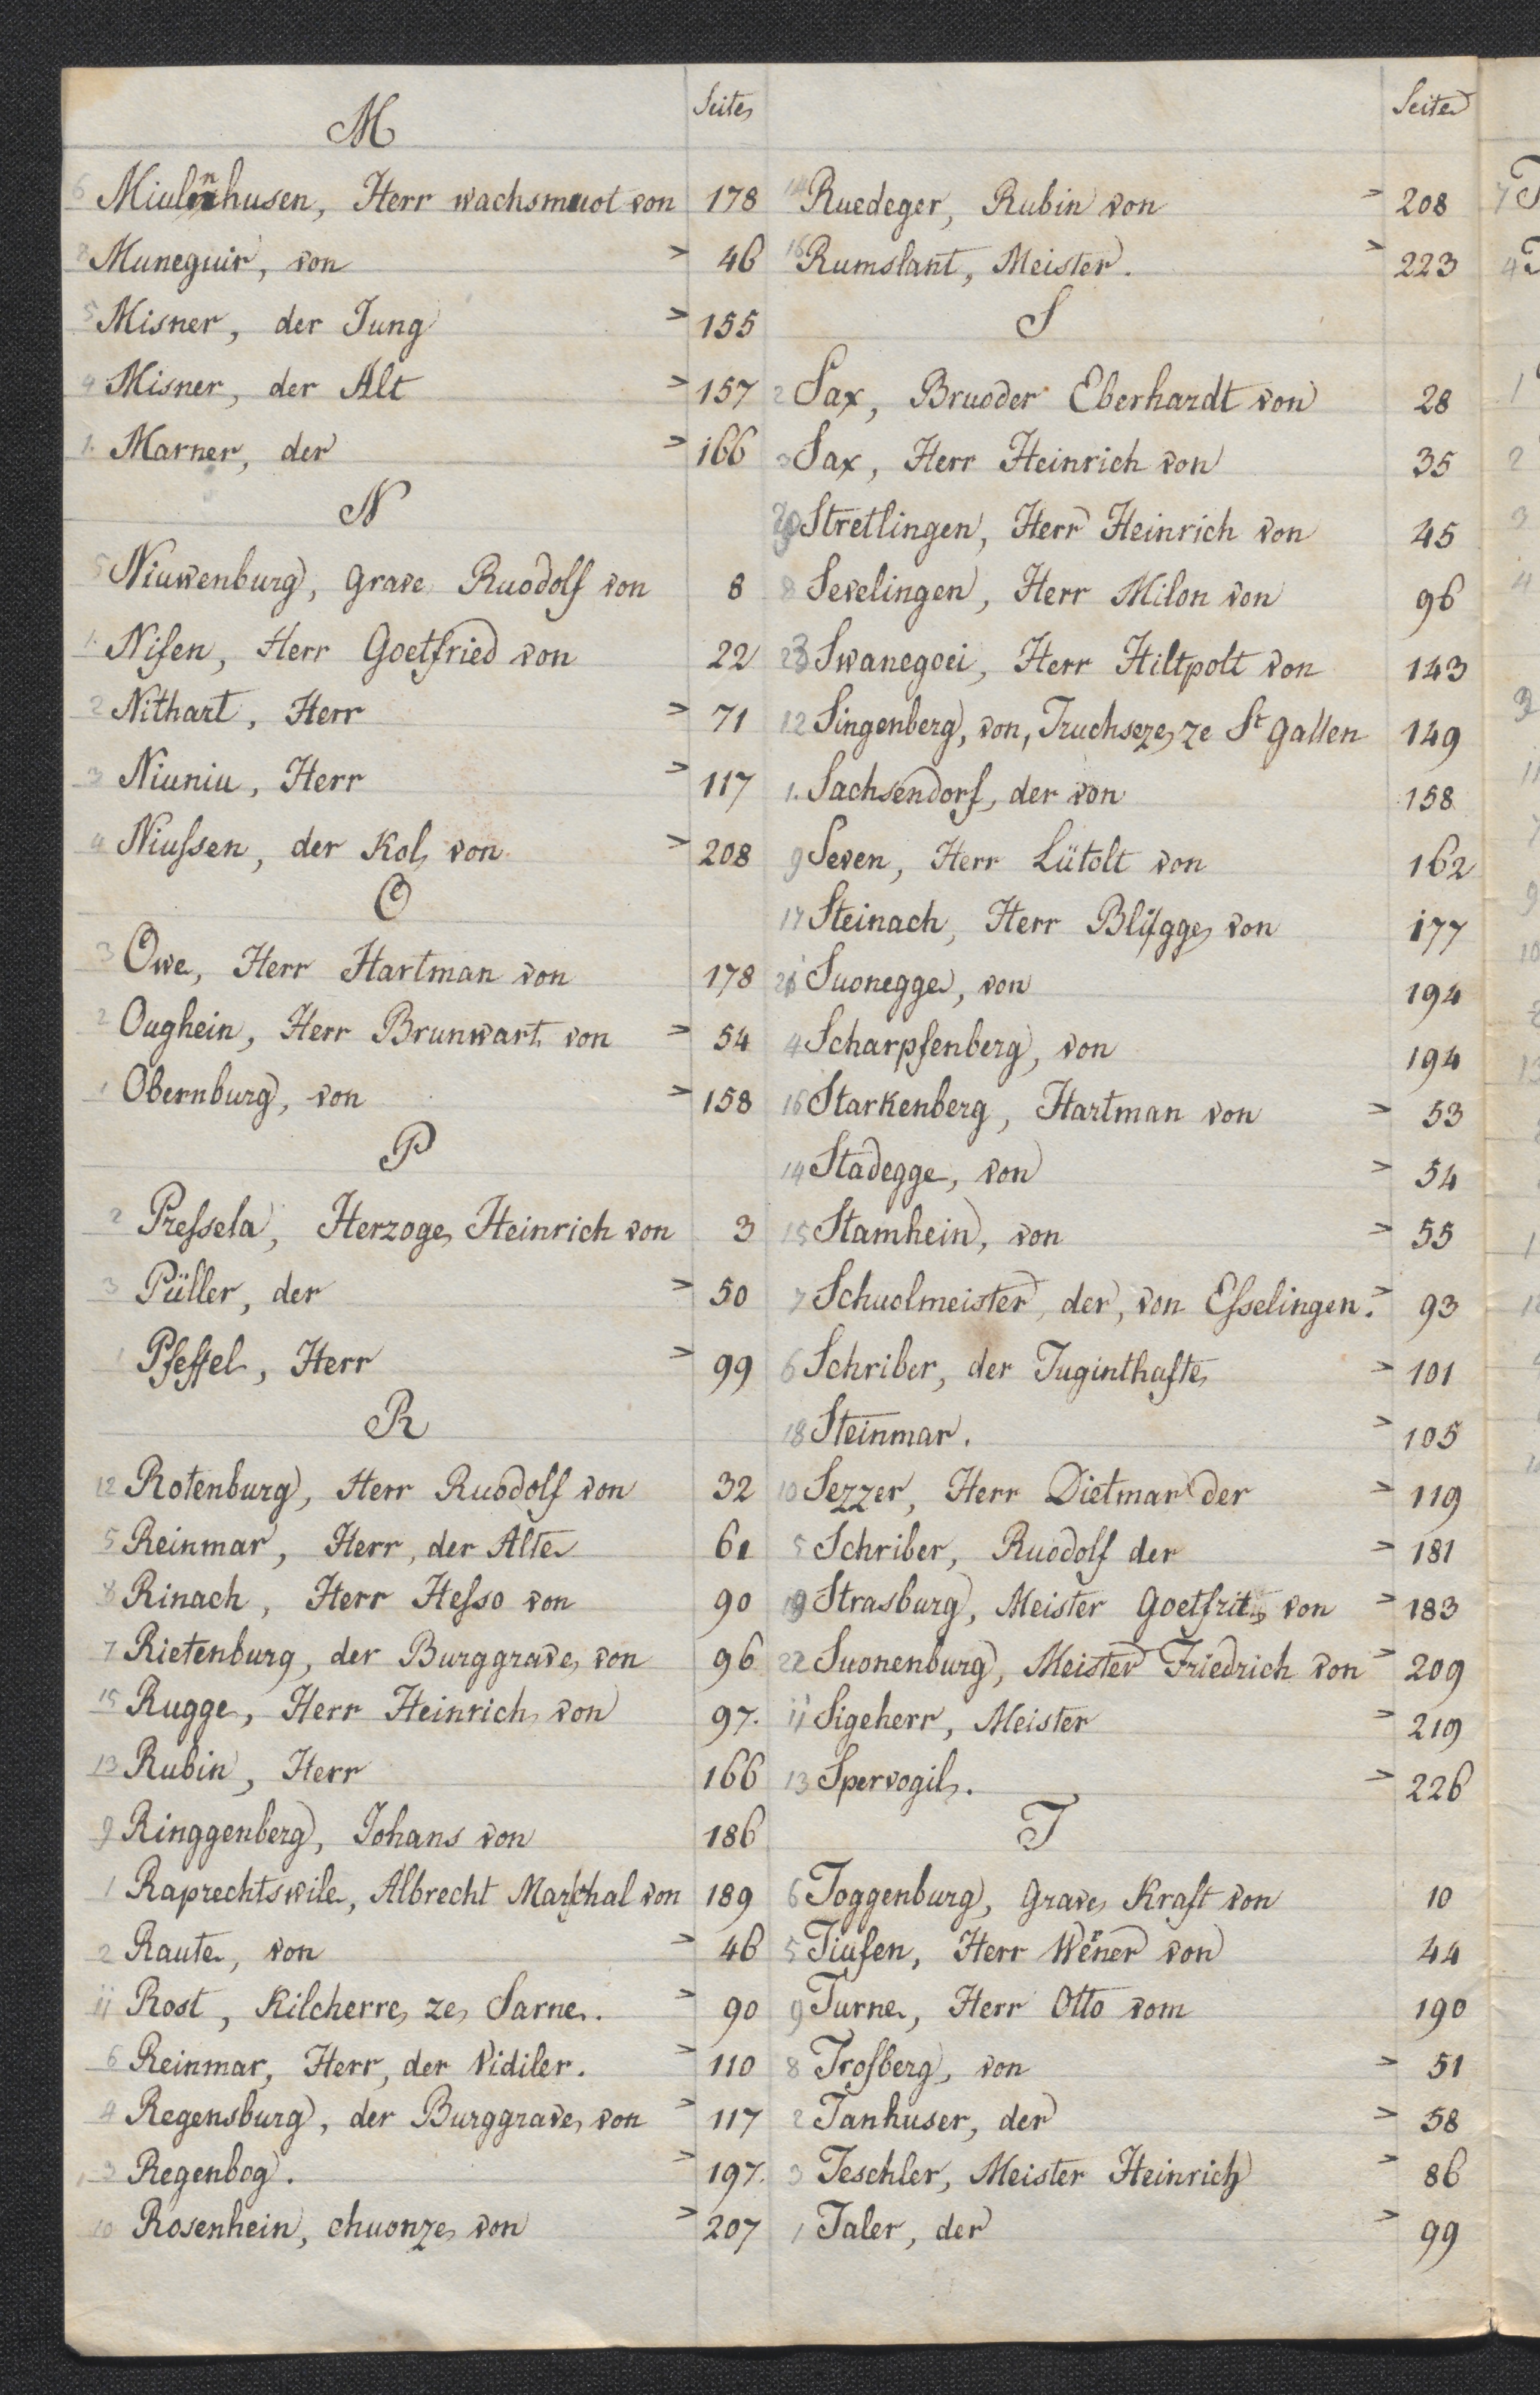 Seite
M
6 Miulnhusen, Herr wachsmuot von 178
Muneguir, von > 46
5 Misner, der Jung > 155
4 Misner, der Alt > 157
1. Marner, der > 166
N
5 Niuwenburg, Grave Ruodolf von 8
1. Nifen, Herr Goetfried von 22
2 Nithart, Herr > 71
3 Niuniu, Herr > 117
4 Niussen, der Kol von > 208
O
3 Owe, Herr Hartman von 178
2 Oughein, Herr Brunwart von > 54
1 Obernburg, von > 158
P
2 Pressela, Herzoge Heinrich von 3
3 Püller, der > 50
1 Pfeffel, Herr > 99
R
12 Rotenburg, Herr Ruodolf von 32
5 Reinmar, Herr, der Alte 61
8 Rinach, Herr Hesso von 90
7 Rietenburg, der Burggrave von 96
15 Rugge, Herr Heinrich von 97.
13 Rubin, Herr 166
9 Ringgenberg, Johans von 186
1 Raprechtswile, Albrecht Marschal von 189
2 Raute, von > 46
11 Rost, Kilcherre ze Sarne. > 90
6 Reinmar, Herr, der Vidiler. > 110
4 Regensburg, der Burggrave von > 117
3 Regenbog. > 197.
10 Rosenhein, chuonze von > 207
Seite
14 Ruedeger, Rubin von > 208
16 Rumslant, Meister. > 223
S
2 Sax, Bruoder Eberhardt von 28
3 Sax, Herr Heinrich von 35
20 Stretlingen, Herr Heinrich von 45
8 Sevelingen, Herr Milon von 96
23 Swanegoei, Herr Hiltpolt von 143
12 Singenberg, von, Truchseze ze St Gallen 149
1. Sachsendorf, der von 158
9 Seven, Herr Lütolt von 162
17 Steinach, Herr Bligge von 177
21 Suonegge, von 194
4 Scharpfenberg, von 194
16 Starkenberg, Hartman von > 53
14 Stadegge, von > 54
15 Stamhein, von > 55
7 Schuolmeister, der, von Esselingen. > 93
6 Schriber, der Tuginthafte > 101
18 Steinmar. > 105
10 Sezzer, Herr Dietmar der > 119
5 Schriber, Ruodolf der > 181
19 Strasburg, Meister Goetfrit von > 183
22 Suonenburg, Meister Friedrich von > 209
11 Sigeherr, Meister > 219
13 Spervogil. > 226
T
6 Toggenburg, Grave Kraft von 10
5 Tiufen, Herr Wener von 44
9 Turne, Herr Otto vom 190
8 Trosberg, von > 51
2 Tanhuser, der > 58
3 Teschler, Meister Heinrich > 86
1 Taler, der > 99